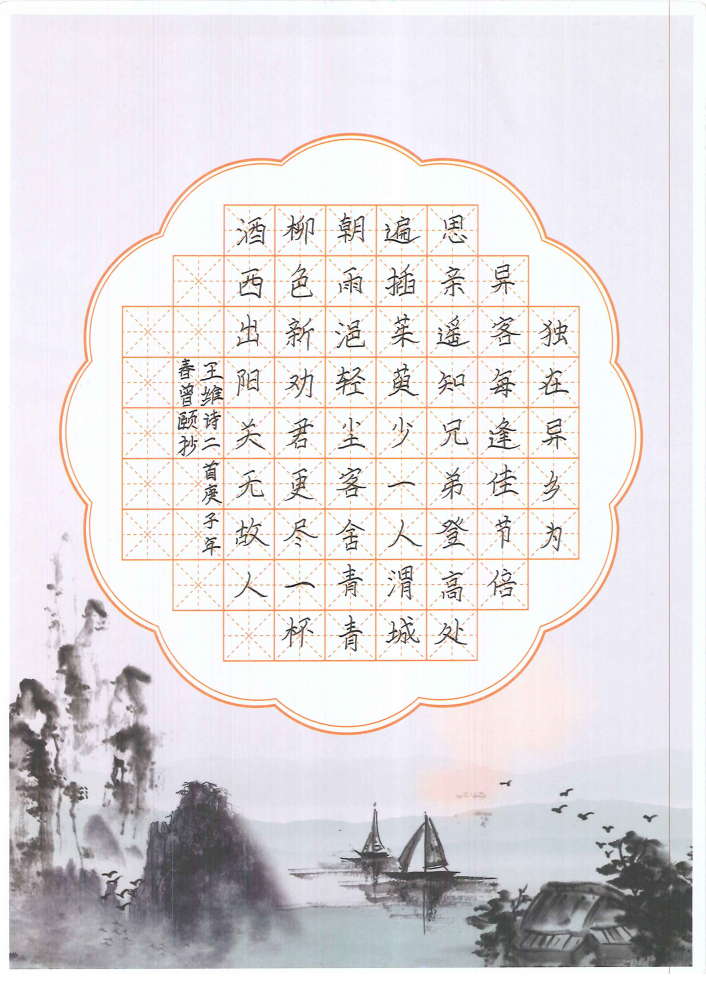 独在异乡为
异客每逢佳节倍
思亲遥知兄弟登高处
遍插茱萸少一人渭城
朝雨浥轻尘客舍青青
柳色新劝君更尽一杯
酒西出阳关无故人
王维诗二首庚子年
春曾颐抄